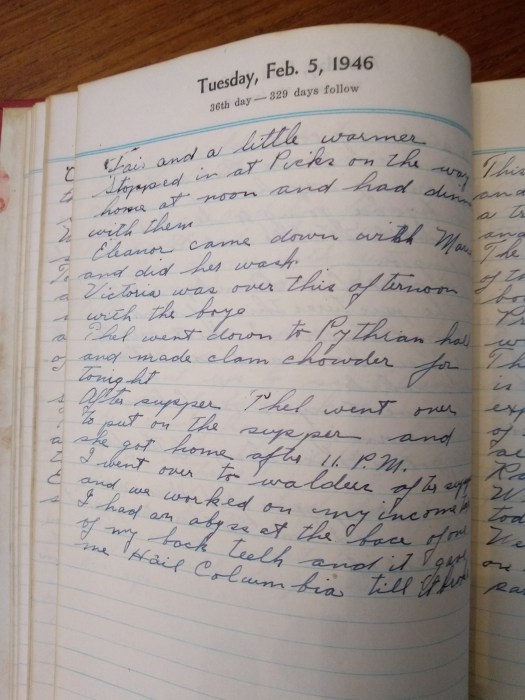 Tuesday, Feb. 5, 1946
36th day — 329 days follow
Fair and a little warmer
Stopped in at Picks on the way
home at noon and had dinn
with them
Eleanor came down with
and did her wash.
Victoria was over this afternoon
with the boys
Phel went down to Pythian hall
and made clam chowder for
tonight
After supper Phel went over
to put on the supper and
she got home after 11. P.M.
I went over to walders after
and we worked on my income
I had an abyss at the base of one
of my back teeth and it gave
me Hail Columbia till it
This
and
a
and
The
of